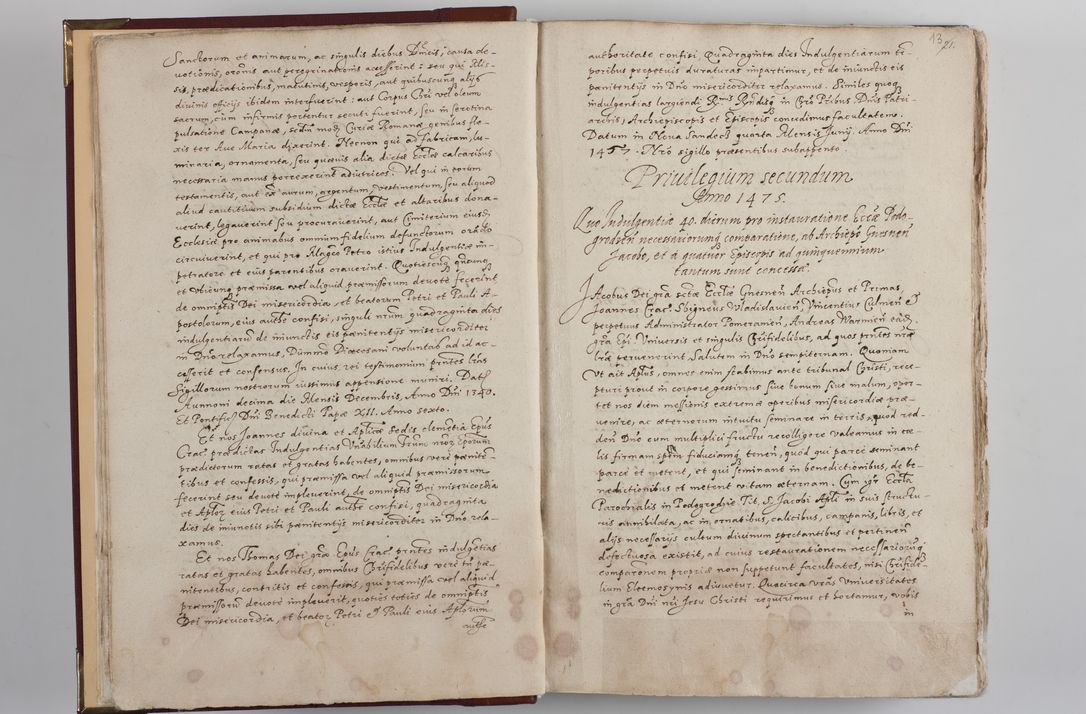 Sanctorum et animarum, ac singulis diebus Dnicis, causa de-
uotionis, oronis aut peregrinationis accesserint: seu qui Mis-
sis, prædicationibus, matutinis, vesperis, aut quibuscunq alijs
diuinis officijs ibidem interfuerint: aut Corpus Chri vel oleum
sacrum, cum infirmis portentur secuti fuerint, seu in serotina
pulsatione Campanæ, scdm modũ Curiæ Romanæ, genibus fle-
xis ter Aue Maria dixerint. Necnon qui ad fabricam, lu-
minaria, ornamenta, seu quæuis alia dictæ Ecclæ calcaribus
necessaria manus porrexerint adiutrices. Vel qui in eorum
testamentis, aut ex aurum, argentum, vestimentum, seu aliquod
aliud cautitiuum subsidium dictæ Ecclæ et altaribus dona-
uerint, legauerint seu procurauerint, aut Cimiterium eiusdẽ
Ecclesiæ pro animabus omnium fidelium defunctorum orãdo
circuiuerint, et qui pro Magro Petro istius Indulgentiæ im-
petratore et eius parentibus orauerint. Quotiescunq quancunq
et vbicunq præmissa vel aliquid præmissorum deuotè fecerint
de omniptis Dei misericordia, et beatorum Petri et Pauli A-
postolorum, eius authte confisi, singuli nrum quadraginta dies
indulgentiarũ de iniunctis eis pænitentijs misericorditer
in Dno relaxamus, Dummo Diæcesani voluntas ad id ac-
cesserit et consensus. In cuius rei testimonium pñtes Lras
Sigillorum nostrorum iussimus appensione muniri. Dat.
Auinioni decima die Mensis Decembris, Anno Dni 1340.
Et Pontific. Dni Benedicti Papæ XII. Anno sexto.
Et nos Joannes diuina et Aplicæ Sedis clemẽtia Epus
Crac. prædictas Indulgentias Vnabilium Frum nrorũ Eporum
prædictorum ratas et gratas habentes, omnibus verè pænitẽ-
tibus et confessis, qui præmissa vel aliquid præmissorum
fecerint seu deuotè impleuerint, de omniptis Dei misericordia
et Aplor eius Petri et Pauli authte confisi, quadraginta
dies de iniunctis sibi pænitentijs misericorditer in Dno rela-
xamus.
Et nos Thomas Dei gra Epus Crac. pñtes indulgẽtias
ratas et gratas habentes, omnibus Chrifidelibus verè in pæ-
nitentibus, contritis et confessis, qui præmissa vel aliquid
præmissorũ deuotè impleuerit, quoties toties de omniptis
Dei misericordia, et beator Petri et Pauli eius Aplorum
authte
13 21.
authoritate confisi Quadraginta dies Indulgentiarum tẽ-
poribus perpetuis duraturas impartimur, et de iniunctis eis
pænitentijs in Dno misericorditer relaxamus. Similes quoq
indulgentias largiendi Rmis Rndisq in Chro Pribus Dnis Patri-
archis, Archiepiscopis et Episcopis concedimus facultatem.
Datum in Noua Sandecz quarta Mensis Junij. Anno Dni
1457. Nro sigillo præsentibus subappenso.
Priuilegium secundum
Anno 1475.
Quo Indulgentiæ 40. dierum pro instauratione Eccæ Podo-
grodzen necessariorumq comparatione, ab Archiepo Gnesnen
Jacobo, et a quatuor Episcopis ad quinquennium
tantum sunt concessæ.
Jacobus Dei gra sctæ Ecclæ Gnesnen Archiepus et Primas,
Joannes Crac. Sbigneus Wladislauien, Vincentius Culmen et
perpetuus Administrator Pomeranien, Andreas Warmien eadẽ
gra Epi Vniuersis et singulis Chrifidelibus, ad quos pñtes nræ
lræ peruenerint, Salutem in Dno sempiternam. Quoniam
Vt ait Aplus, omnes enim stabimus ante tribunal Christi, rece-
pturi prout in corpore gessimus siue bonum siue malum, opor-
tet nos diem messionis extremæ operibus misericordiæ præ-
uenire, ac æternorum intuitu seminare in terris, quod red-
den Dno cum multiplici fructu recolligere valeamus in cæ-
lis firmam spem fiduciamq tenen, quod qui parcè seminant
parcè et metent, et qui seminant in benedictionibus, de be-
nedictionibus et metent vitam æternam. Cum igr Eccla
Parochialis in Podegrodzie Tit. S. Jacobi Apli in suis structu-
ris annihilata, ac in ornatibus, calicibus, campanis, libris, et
alijs necessarijs cultum diuinum spectantibus et pertinen
defectuosa existit, ad cuius restaurationem necessariorũq
comparonem propriæ non suppetunt facultates, nisi Chrifide-
lium Eleemosynis adiuuetur. Quocirca vras vniuersitates
in gra Dni nri Jesu Christi requirimus et hortamur, vobis
in